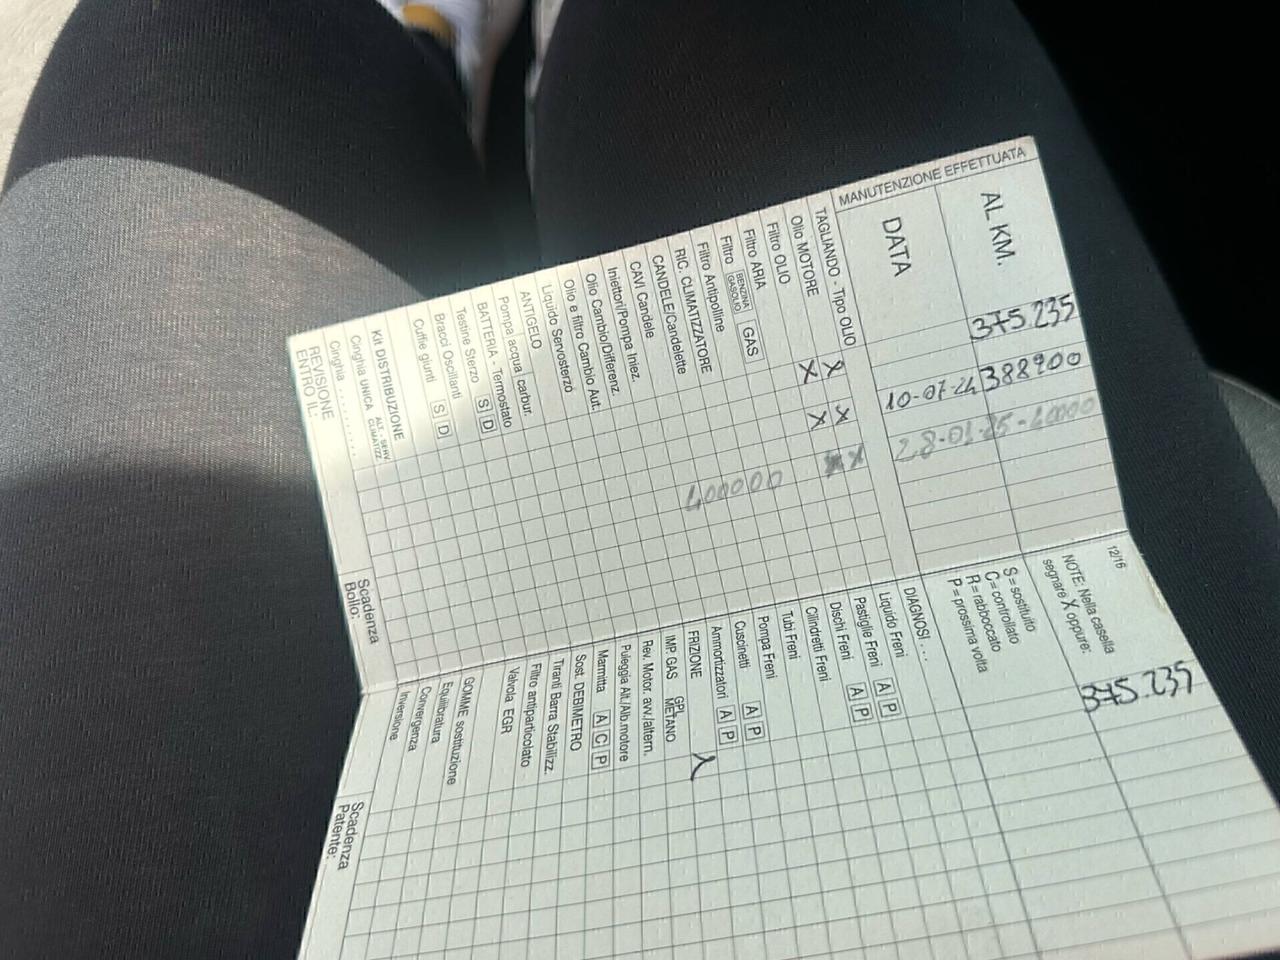 MANUTENZIONE EFFETTUATA
AL KM. 375.235 388900 400007
DATA 10-07-24 28-10-25
TAGLIANDO - Tipo OLIO X X X
Olio MOTORE X X X
Filtro OLIO
Filtro ARIA
Filtro BENZINA GASOLIO GAS
Filtro Antipolline
RIC. CLIMATIZZATORE
CANDELE/Candelette
CAVI Candele
Iniettori/Pompa Iniez.
Olio Cambio/Differenz.
Olio e filtro Cambio Aut.
Liquido Servosterzo
ANTIGELO
Pompa acqua carbur.
BATTERIA - Termostato
Testine Sterzo S D
Bracci Oscillanti
Cuffie giunti S D
Kit DISTRIBUZIONE
Cinghia UNICA ALT. - SERV. CLIMATIZZ.
Cinghia ..........
REVISIONE
ENTRO IL:
Scadenza
Bollo:
12/16
NOTE: Nella casella
segnare X oppure:
S = sostituito
C = controllato
R = rabboccato
P = prossima volta
375.235
DIAGNOSI ...
Liquido Freni
Pastiglie Freni A P
Dischi Freni A P
Cilindretti Freni
Tubi Freni
Pompa Freni
Cuscinetti A P
Ammortizzatori A P
FRIZIONE X
IMP. GAS GPL METANO
Rev. Motor. avv./altern.
Puleggia Alt./Alb.motore
Marmitta A C P
Sost. DEBIMETRO
Tiranti Barra Stabilizz.
Filtro antiparticolato
Valvola EGR
GOMME sostituzione
Equilibratura
Convergenza
Inversione
Scadenza
Patente: